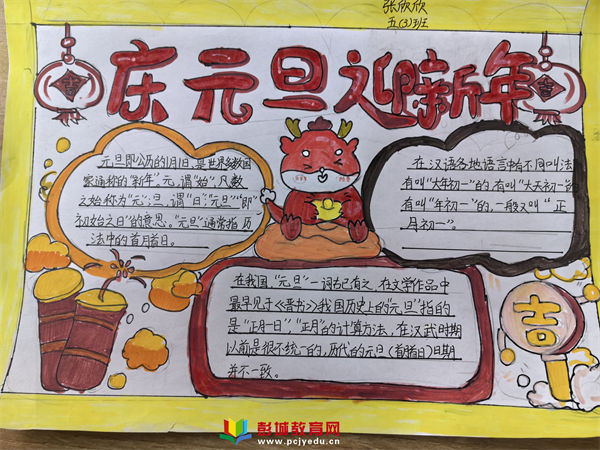 张欣欣
五(3)班
庆元旦迎新年
吉
吉
元旦即公历的1月1日,是世界多数国
家通称的“新年”。元,谓“始”,凡数
之始称为“元”;旦,谓“日”;“元旦”即“
初始之日”的意思。“元旦”通常指历
法中的首月首日。
在汉语各地语言中有不同叫法
有叫“大年初一”的,有叫“大天初一”的
有叫“年初一”的,一般又叫“正
月初一”。
在我国,“元旦”一词古已有之,在文学作品中
最早见于《晋书》我国历史上的“元旦”指的
是“正月一日”,“正月”的计算方法,在汉武时期
以前是很不统一的,历代的元旦(首月首日)日期
并不一致。
吉
彭城教育网
www.pcjyedu.cn